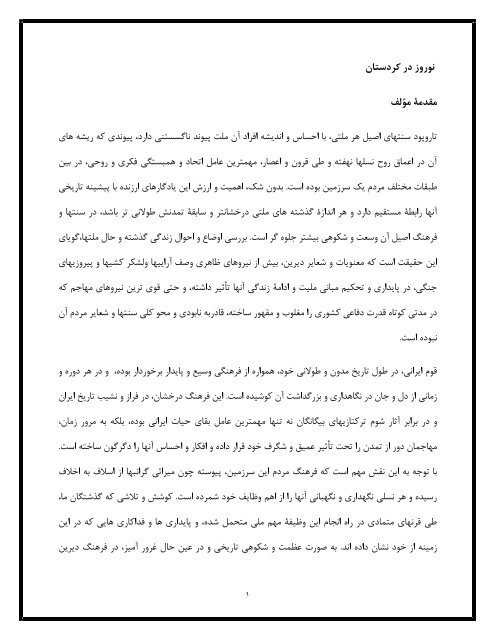 نوروز در کردستان
مقدمهٔ مؤلف
تاروپود سنتهای اصیل هر ملتی، با احساس و اندیشه افراد آن ملت پیوند ناگسستنی دارد، پیوندی که ریشه های
آن در اعماق روح نسلها نهفته و طی قرون و اعصار، مهمترین عامل اتحاد و همبستگی فکری و روحی، در بین
طبقات مختلف مردم یک سرزمین بوده است. بدون شک، اهمیت و ارزش این یادگارهای ارزنده با پیشینه تاریخی
آنها رابطهٔ مستقیم دارد و هر اندازهٔ گذشته های ملتی درخشانتر و سابقهٔ تمدنش طولانی تر باشد، در سنتها و
فرهنگ اصیل آن وسعت و شکوهی بیشتر جلوه گر است. بررسی اوضاع و احوال زندگی گذشته و حال ملتها،گویای
این حقیقت است که معنویات و شعایر دیرین، بیش از نیروهای ظاهری وصف آراییها ولشکر کشیها و پیروزیهای
جنگی، در پایداری و تحکیم مبانی ملیت و ادامهٔ زندگی آنها تأثیر داشته، و حتی قوی ترین نیروهای مهاجم که
در مدتی کوتاه قدرت دفاعی کشوری را مغلوب و مقهور ساخته، قادربه نابودی و محو کلی سنتها و شعایر مردم آن
نبوده است.
قوم ایرانی، در طول تاریخ مدون و طولانی خود، همواره از فرهنگی وسیع و پایدار برخوردار بوده، و در هر دوره و
زمانی از دل و جان در نگاهداری و بزرگداشت آن کوشیده است. این فرهنگ درخشان، در فراز و نشیب تاریخ ایران
و در برابر آثار شوم ترکتازیهای بیگانگان نه تنها مهمترین عامل بقای حیات ایرانی بوده، بلکه به مرور زمان،
مهاجمان دور از تمدن را تحت تأثیر عمیق و شگرف خود قرار داده و افکار و احساس آنها را دگرگون ساخته است.
با توجه به این نقش مهم است که فرهنگ مردم این سرزمین، پیوسته چون میراثی گرانبها از اسلاف به اخلاف
رسیده و هر نسلی نگهداری و نگهبانی آنها را از اهم وظایف خود شمرده است. کوشش و تلاشی که گذشتگان ما،
طی قرنهای متمادی در راه انجام این وظیفهٔ مهم ملی متحمل شده، و پایداری ها و فداکاری هایی که در این
زمینه از خود نشان داده اند. به صورت عظمت و شکوهی تاریخی و در عین حال غرور آمیز، در فرهنگ دیرین
۱